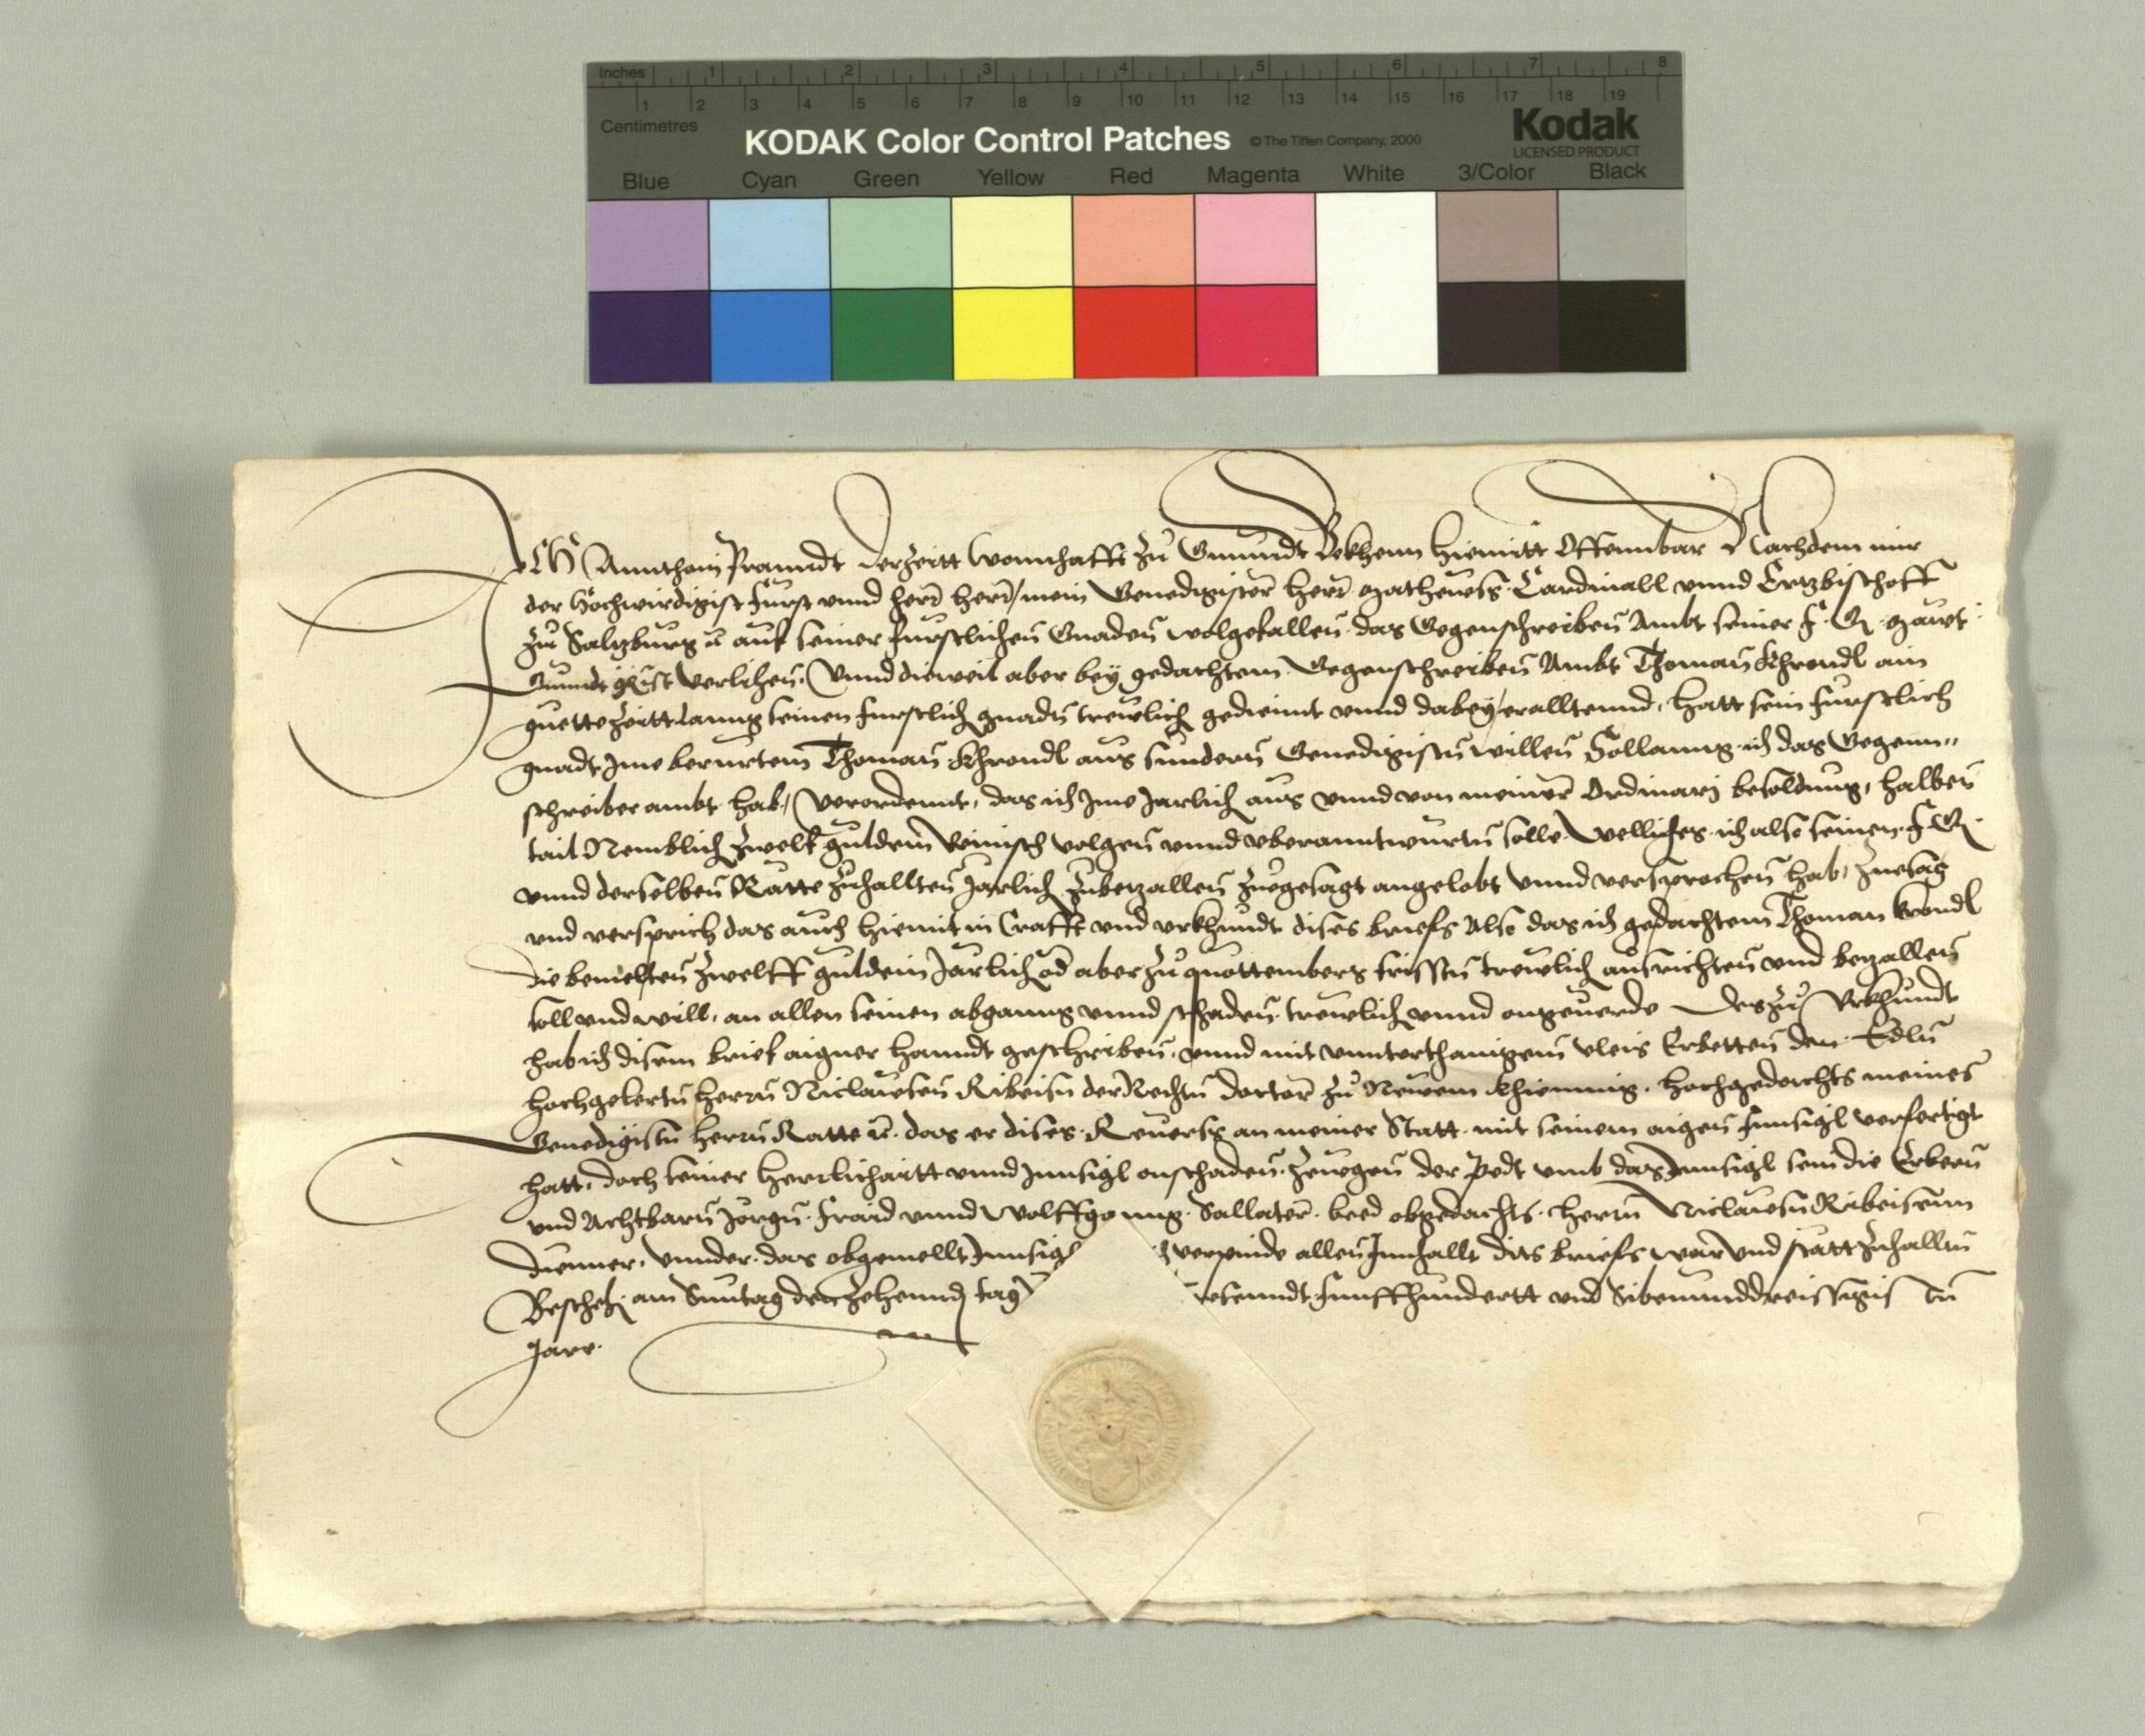 Inches 1 2 3 4 5 6 7 8
1 2 3 4 5 6 7 8 9 10 11 12 13 14 15 16 17 18 19
Centimetres
KODAK Color Control Patches © The Tiffen Company, 2000 Kodak
LICENSED PRODUCT
Blue Cyan Green Yellow Red Magenta White 3/Color Black
ICH Annthoni Pranndt derzeitt wonnhafft zu Gmundt Bekhenn hiemitt Offennbar Nachdem mir
der Hochwirdigist Furst unnd herr herr/ mein Genedigister herr Matheuss Cardinall unnd Ertzbischoff
zu Saltzburg auf seiner furstlichen Gnaden wolgefallen das Gegenschreiben Ambt seiner F. G. Mawt
Gmundt verlihen, Unnd dieweil aber bey gedachtem Gegenschreiben Ambt Thoman Khrendl ain
guette zeitt lanng seinen furstlich gnadn trewlich gediennt unnd dabey/ eralltennd, hatt sein furstlich
gnadt Ime berurtem Thoman Khrendl aus sundern Genedigistn willen Sollanng ich das Gegenn-
schreiber ambt hab, verordennt, das ich Ime Jarlich aus unnd von meiner Ordinarj besoldung, halben
tail Nemblich zwelf guldein Reinisch volgen unnd uberanntwurtn solle Wellichs ich also seinen F. G.
unnd derselben Rätte zuhallten Jarlich zubetzallen zuegesagt angelobt unnd versprochen hab, zuesag
und versprich das auch hiemit in Crafft und urkhundt dises briefs Also das ich gedachtem Thoman Krendl
die bemelten zwelff guldein Jarlich od aber zu quottembers frisstn trewlich ausrichten und betzallen
soll und will, an allen seinen abganng unnd schaden trewlich unnd ongeverde Des zu Urkhundt
hab ich disem brief aigner hanndt geschriben, unnd mit unnterthanigem vleis Erbetten den Edln
hochgelertn herrn Niclausen Ribeisn der Rechtn doctor zu Newem Khieming, hochgedachts meines
Genedigistn herrn Ratte das er dises Reverss an meiner Statt mit seinem aigen Innsigl verfertigt
hatt, doch seiner herrlichaitt unnd Innsigl onschaden Zeugen der Pedt umb das Innsigl sein die Erbern
und Achtbarn Jorgn unnd Wolffganng beed obgedachts herrn Niclausn Ribeisenn
Dienner, unnder das obgemellt Innsigl verpinde allen Innhallt dits briefs war und statt zuhalltn
Bescheh am Sunntag den zehennd tag tausenndt funffhundertt und Sibenunddreissigistn
Jare.